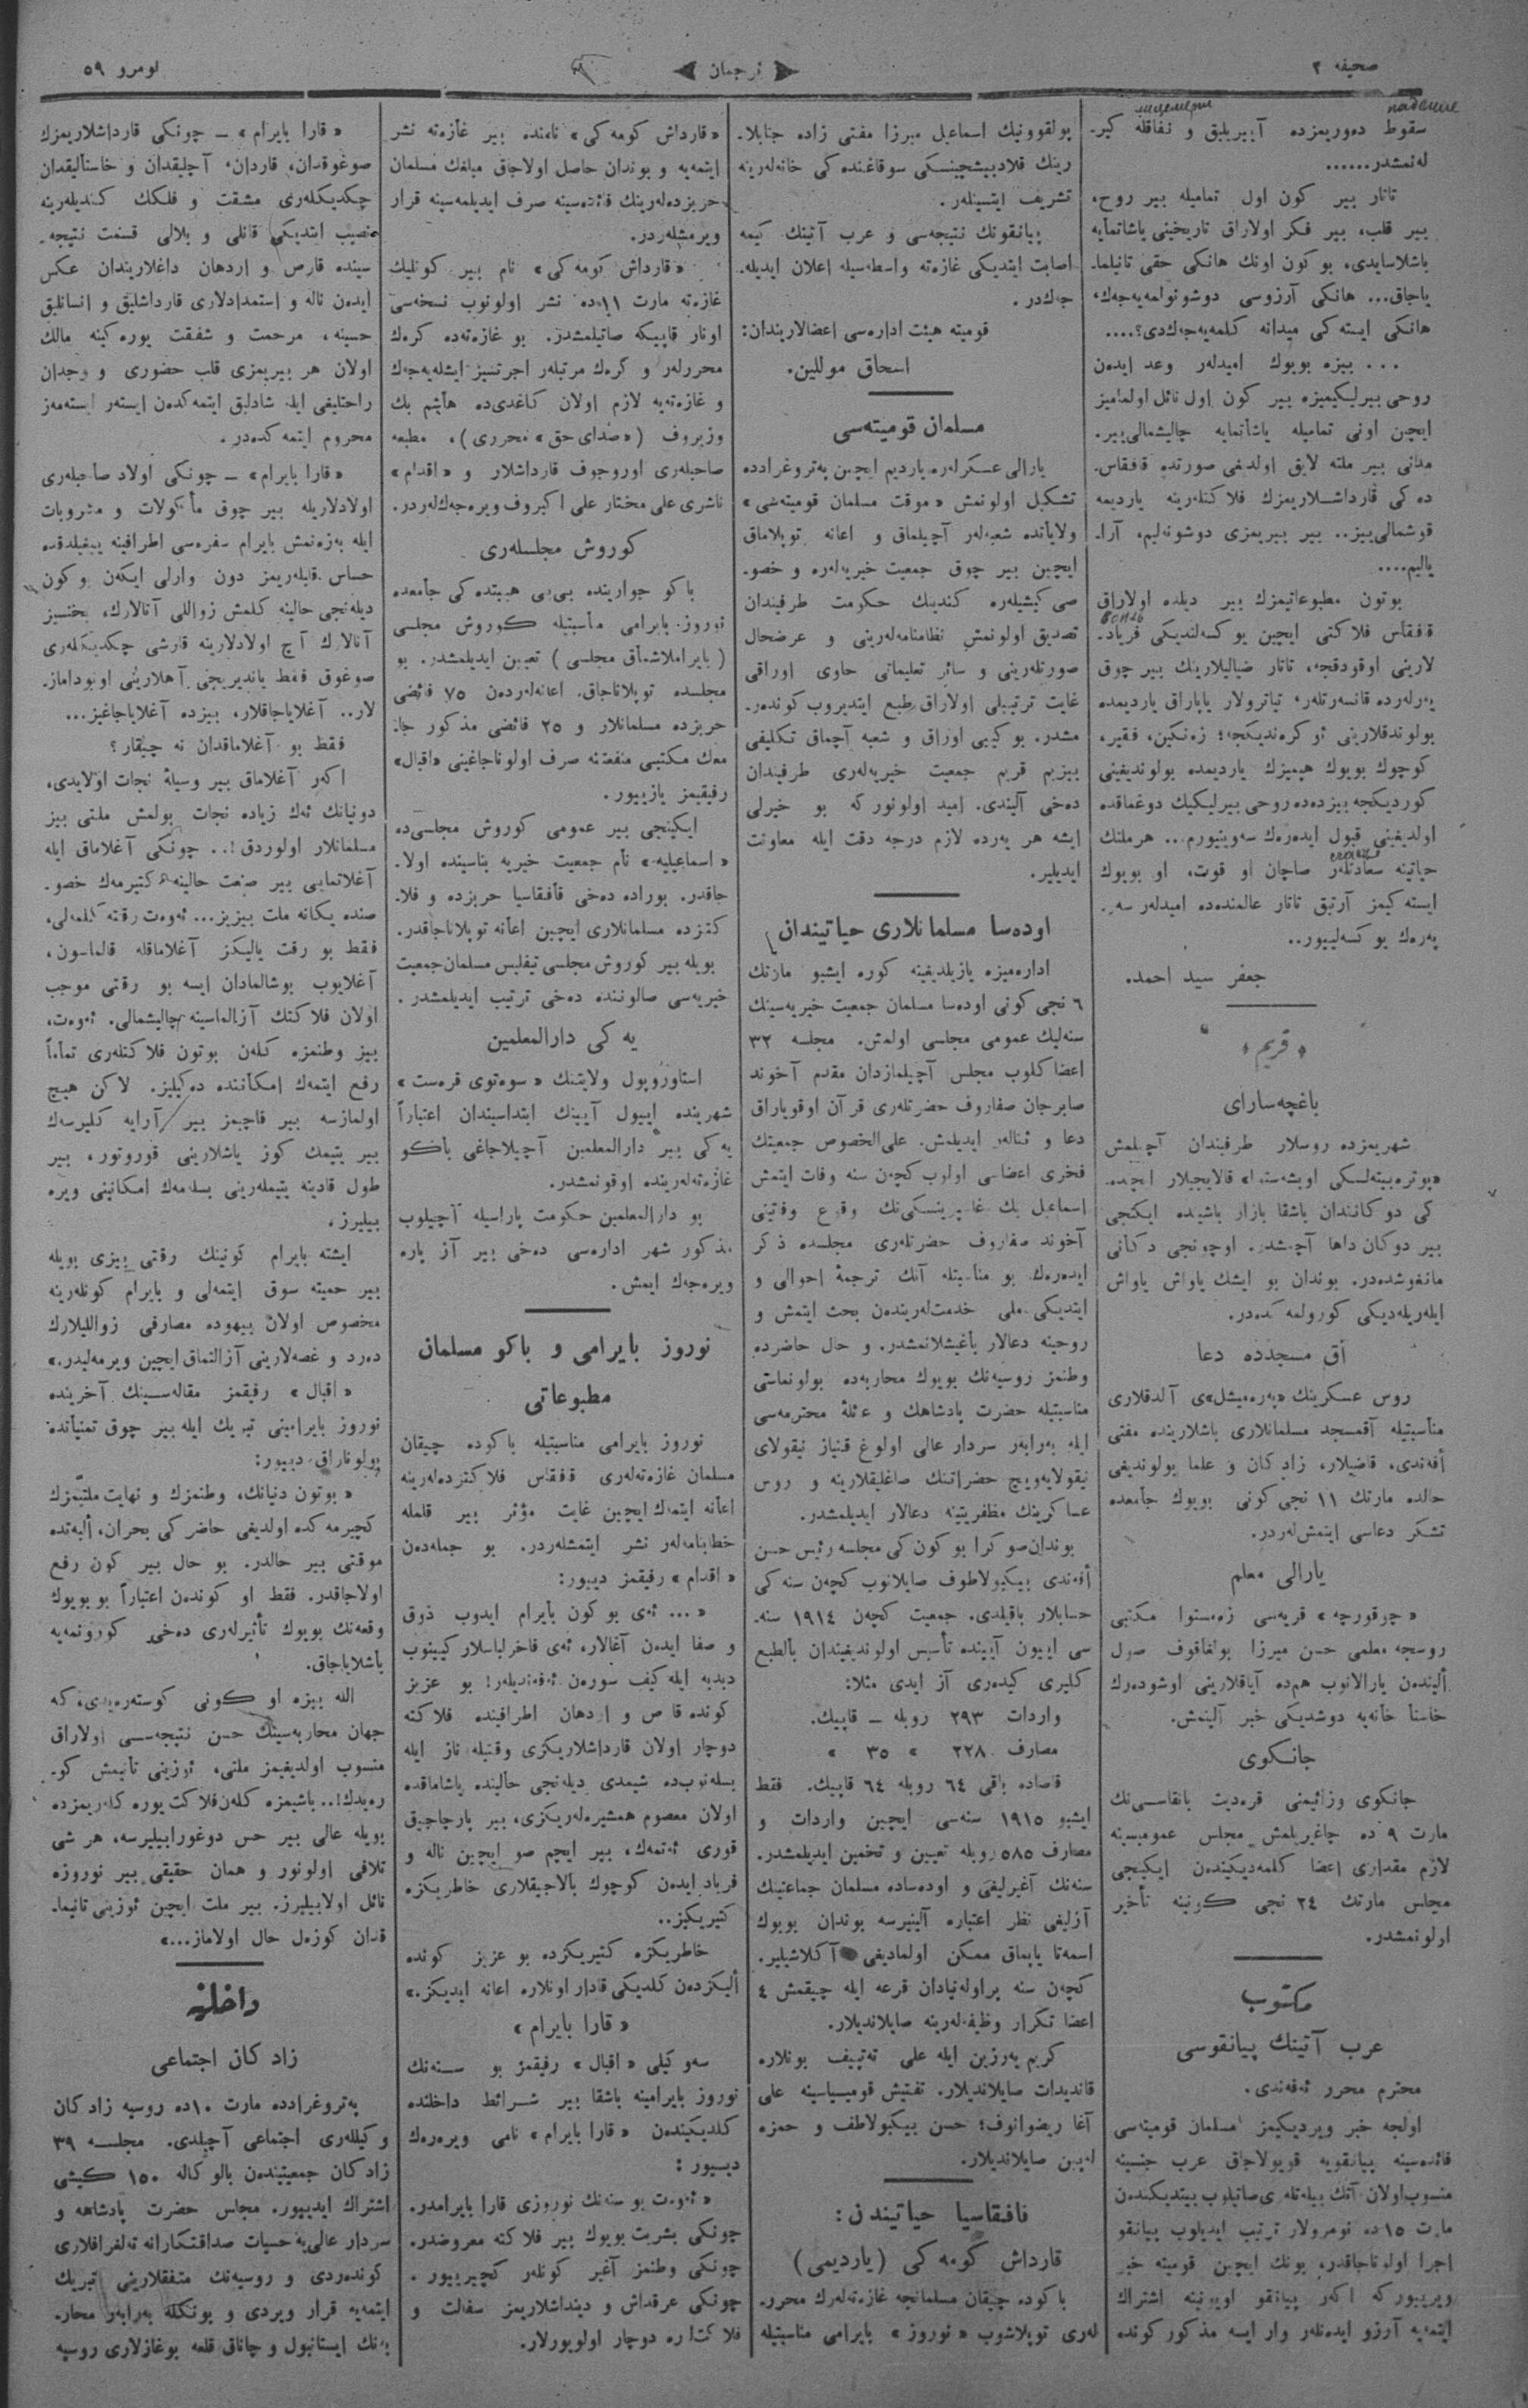 صحیفه ٢
ترجمان
نومرو ٥٩
سقوط دەوریمزده آییریلیق و نفاقله کیر-
لەنمشدر......
تاتار بیر کون اول تمامیله بیر روح،
بیر قلب، بیر فکر اولاراق تاریخینی یاشاتمایه
باشلاسایدی، بو کون اونك هانکی حقی تانیلما-
یاجاق... هانکی آرزوسی دوشونولمەیەجەك،
هانکی ایستەکی میدانه کلمەیەجەكدی؟....
... بیزه بویوك امیدلەر وعد ایدەن
روحی بیرلیکیمیزه بیر کون اول نائل اولمامیز
ایچین اونی تمامیله یاشاتمایه چالیشمالی‌ییز.
مدنی بیر ملته لایق اولدیغی صورتده قافقاس-
دەکی قارداشلاریمزك فلاکتلەرینه یاردیمه
قوشمالی‌ییز.. بیر بیریمزی دوشونەلیم، آرا-
یالیم....
بوتون مطبوعاتیمزك بیر دیلده اولاراق
قافقاس فلاکتی ایچین یوکسەلندیکی فریاد-
لارینی اوقودقجه، تاتار ضیالیلارینك بیر چوق
یەرلەرده قانسەرتلەر، تیاترولار یاپاراق یاردیمده
بولوندقلارینی ئوکرەندیکجه؛ زەنکین، فقیر،
کوچوك بویوك هپمیزك یاردیمده بولوندیغینی
کوردیکجه بیزدەده روحی بیرلیکیك دوغماقده
اولدیغینی قبول ایدەرەك سەوینیورم... هر ملتك
حیاتینه سعادتلەر صاچان او قوت، او بویوك
ایستەکیمز آرتیق تاتار عالمندەده امیدلەر سەر-
پەرەك یوکسەلییور..
جعفر سید احمد.
« قریم »
باغچەسارای
شهریمزده روسلار طرفیندان آچیلمش
«پوترەبیتەلسکی اوبشەستوا» قالایجیلار ایچده-
کی دوکانندان باشقا بازار باشیده ایکنجی
بیر دوکان داها آچمشدر. اوچونجی دکانی
مانغوشدەدر. بوندان بو ایشك یاواش یاواش
ایلەریلەدیکی کورولمەکدەدر.
آق مسجدده دعا
روس عسکرینك «پەرەمیشل»ی آلدقلاری
مناسبتیله آقمسجد مسلمانلاری باشلارینده مفتی
أفەندی، قاضیلار، زادکان و علما بولوندیغی
حالده مارتك ١١ نجی کونی بویوك جامعده
تشکر دعاسی ایتمش‌لەردر.
یارالی معلم
« چورقورچه » قریەسی زەمستوا مکتبی
روسجه معلمی حسن میرزا بولغاقوف صول
ألیندەن یارالانوب همده آیاقلارینی اوشودەرك
خاستا خانەیه دوشدیکی خبر آلینمش.
جانکوی
جانکوی وزائیمنی قرەدیت بانقاسی‌نك
مارت ٩ ده چاغیریلمش مجلس عمومیسینه
لازم مقداری اعضا کلمەدیکیندەن ایکینجی
مجلس مارتك ٢٤ نجی کونینه تأخیر
اولونمشدر.
مکتوب
عرب آتینك پیانقوسی
محترم محرر ئەفەندی.
اولجه خبر ویردیکیمز مسلمان قومیتەسی
فائدەسینه پیانقویه قویولاجاق عرب جنسینه
منسوب اولان آتك بیلەتلەری صاتیلوب بیتدیکندەن
مارت ١٥ده نومرولار ترتیب ایدیلوب پیانقو
اجرا اولوناجاقدر، بونك ایچین قومیته خبر
ویرییورکه اکەر پیانقو اویونینه اشتراك
ایتمەیه آرزو ایدەنلەر وار ایسه مذکور کونده
پولقوونیك اسماعیل میرزا مفتی زاده جنابلا-
رینك قلادبیشچینسکی سوقاغندەکی خانەلەرینه
تشریف ایتسینلەر.
پیانقونك نتیجەسی و عرب آتینك کیمه
اصابت ایتدیکی غازەته واسطەسیله اعلان ایدیلە-
جەكدر.
قومیته هیئت ادارەسی اعضالاریندان:
اسحاق موللین.
مسلمان قومیتەسی
یارالی عسکرلەره یاردیم ایچین پەتروغرادده
تشکیل اولونمش «موقت مسلمان قومیتەسی»
ولایاتده شعبەلەر آچیلماق و اعانه توپلاماق
ایچین بیر چوق جمعیت خیریەلەره و خصو-
صی کیشیلەره کندینك حکومت طرفیندان
تصدیق اولونمش نظامنامەلەرینی و عرضحال
صورتلەرینی و سائر تعلیماتی حاوی اوراقی
غایت ترتیبلی اولاراق طبع ایتدیروب کوندەر-
مشدر. بو کیبی اوراق و شعبه آچماق تکلیفی
بیزیم قریم جمعیت خیریەلەری طرفیندان
دەخی آلیندی. امید اولونورکه بو خیرلی
ایشه هر یەرده لازم درجه دقت ایله معاونت
ایدیلیر.
اودەسا مسلمانلاری حیاتیندان
ادارەمیزه یازیلدیغینه کوره ایشبو مارتك
٦ نجی کونی اودەسا مسلمان جمعیت خیریەسینك
سنەلیك عمومی مجلسی اولمش. مجلسه ٣٢
اعضا کلوب مجلس آچیلمازدان مقدم آخوند
صابرجان صفاروف حضرتلەری قرآن اوقویاراق
دعا و ثنالەر ایدیلمش. علی‌الخصوص جمعیتك
فخری اعضاسی اولوب کچەن سنه وفات ایتمش
اسماعیل بك غاسپرینسکی‌نك وقوع وفتینی
آخوند صفاروف حضرتلەری مجلسده ذکر
ایدەرەك بو مناسبتله آنك ترجمۀ احوالی و
ایتدیکی ملی خدمت‌لەریندەن بحث ایتمش و
روحینه دعالار باغیشلانمشدر. و حال حاضرده
وطنمز روسیەنك بویوك محاربەده بولونماسی
مناسبتیله حضرت پادشاهك و عائلۀ محترمەسی
ایله بەرابەر سردار عالی اولوغ قنیاز نیقولای
نیقولایەویچ حضراتنك صاغلیقلارینه و روس
عساکرینك مظفریتینه دعالار ایدیلمشدر.
بوندان صوکرا بو کون‌کی مجلسه رئیس حسن
أفەندی بیکبولاطوف صایلانوب کچەن سنەکی
حسابلار باقیلدی. جمعیت کچەن ١٩١٤ سنە-
سی اییون آیینده تأسیس اولوندیغیندان بالطبع
کلیری کیدەری آز ایدی مثلا:
واردات ٢٩٣ روبله — قاپیك.
مصارف ٢٢٨ » ٣٥ »
قاصاده باقی ٦٤ روبله ٦٤ قاپیك. فقط
ایشبو ١٩١٥ سنەسی ایچین واردات و
مصارف ٥٨٥ روبله تعیین و تخمین ایدیلمشدر.
سنەنك آغیرلیغی و اودەساده مسلمان جماعتینك
آزلیغی نظر اعتباره آلینیرسه بوندان بویوك
اسمەتا یاپماق ممکن اولمادیغی آکلاشیلیر.
کچەن سنه پراولەنیادان قرعه ایله چیقمش ٤
اعضا تکرار وظیفەلەرینه صایلاندیلار.
کریم پەرزین ایله علی تەپییف بونلاره
قاندیدات صایلاندیلار. تفتیش قومیسیاسینه علی
آغا ریضوانوف؛ حسن بیکبولاطف و حمزه
صایلاندیلار.
قافقاسیا حیاتیندن:
قارداش کومەکی (یاردیمی)
باکوده چیقان مسلمانجه غازەتەلەرك محرر-
لەری توپلاشوب «نوروز» بایرامی مناسبتیله
«قارداش کومەکی» نامنده بیر غازەته نشر
ایتمەیه و بوندان حاصل اولاجاق مبلغك مسلمان
حربزدەلەرینك فائدەسینه صرف ایدیلمەسینه قرار
ویرمشلەردر.
«قارداش کومەکی» نام بیر کونلیك
غازەته مارت ١١ده نشر اولونوب نسخەسی
اونار قاپیکه صاتیلمشدر. بو غازەتەده کرەك
محررلەر و کرەك مرتبلەر اجرتسیز ایشلەیەجەك
و غازەتەیه لازم اولان کاغدی‌ده هأشم بك
وزیروف («صدای حق» محرری)، مطبعه
صاحبلەری اوروجوف قارداشلار و «اقدام»
ناشری علی مختار علی اکبروف ویرەجەك‌لەردر.
کوروش مجلسلەری
باکو جوارینده بی‌بی هیبتدەکی جامعده
نوروز بایرامی مناسبتیله کوروش مجلسی
(بایراملاشماق مجلسی) تعیین ایدیلمشدر. بو
مجلسده توپلاناجاق اعانەلەردەن ٧٥ فائضی
حربزده مسلمانلار و ٢٥ فائضی مذکور جا-
معك مکتبی منفعتنه صرف اولوناجاغینی «اقبال»
رفیقیمز یازییور.
ایکینجی بیر عمومی کوروش مجلسی‌ده
«اسماعیلیه» نام جمعیت خیریه بناسینده اولا-
جاقدر. بوراده دەخی قافقاسیا حربزده و فلا-
کتزده مسلمانلاری ایچین اعانه توپلاناجاقدر.
بویله بیر کوروش مجلسی تیفلیس مسلمان جمعیت
خیریەسی صالوننده دەخی ترتیب ایدیلمشدر.
یەکی دارالمعلمین
استاوروپول ولایتنك «سوەتوی قرەست»
شهرینده اییول آیینك ابتداسیندان اعتباراً
یەکی بیر دارالمعلمین آچیلاجاغی باکو
غازەتەلەرینده اوقونمشدر.
بو دارالمعلمین حکومت پاراسیله آچیلوب
مذکور شهر ادارەسی دەخی بیر آز پاره
ویرەجەك ایمش.
نوروز بایرامی و باکو مسلمان
مطبوعاتی
نوروز بایرامی مناسبتیله باکوده چیقان
مسلمان غازەتەلەری قافقاس فلاکتزدەلەرینه
اعانه ایتمەك ایچین غایت مؤثر بیر قلمله
خطابنامەلەر نشر ایتمشلەردر. بو جملەدەن
«اقدام» رفیقمز دییور:
«... ئەی بو کون بایرام ایدوب ذوق
و صفا ایدەن آغالار، ئەی فاخر لباسلار کیینوب
دبدبه ایله کیف سورەن ئەفەندیلەر! بو عزیز
کونده قارص و اردهان اطرافینده فلاکته
دوچار اولان قارداشلاریکزی وقتیله ناز ایله
بسلەنوب‌ده شیمدی دیلەنجی حالینده یاشاماقده
اولان معصوم همشیرەلەریکزی، بیر پارچاجیق
قوری ئەتمەك، بیر ایچم صو ایچین ناله و
فریاد ایدەن کوچوك بالاجیقلاری خاطریکزه
کتیریکیز..
خاطریکزه کتیریکزده بو عزیز کونده
ألیکزدەن کلدیکی قادار اونلاره اعانه ایدیکز.»
« قارا بایرام »
سەوکیلی «اقبال» رفیقمز بو سنەنك
نوروز بایرامینه باشقا بیر شرائط داخلنده
کلدیکیندەن «قارا بایرام» نامی ویرەرەك
دییور:
«ئەوەت بو سنەنك نوروزی قارا بایرامدر.
چونکی بشریت بویوك بیر فلاکته معروضدر.
چونکی وطنمز آغیر کونلەر کچیرییور.
چونکی عرقداش و دینداشلاریمز سفالت و
فلاکت‌لره دوچار اولویورلار.
«قارا بایرام» — چونکی قارداشلاریمزك
صوغوقدان، قاردان، آچلیقدان و خاستالیقدان
چکدیکلەری مشقت و فلکك کندیلەرینه
نصیب ایتدیکی قانلی و بلالی قسمت نتیجە-
سینده قارص و اردهان داغلاریندان عکس
ایدەن ناله و استمدادلاری قارداشلیق و انسانلیق
حسینه، مرحمت و شفقت یورەکینه مالك
اولان هر بیریمزی قلب حضوری و وجدان
راحتلیغی ایله شادلیق ایتمەکدەن ایستەر ایستەمەز
محروم ایتمەکدەدر.
«قارا بایرام» — چونکی اولاد صاحبلەری
اولادلاریله بیر چوق مأکولات و مشروبات
ایله بەزەنمش بایرام سفرەسی اطرافینه ییغیلدقده
حساس قلبلەریمز دون وارلی ایکەن بو کون
دیلەنجی حالینه کلمش زواللی آتالارك، بختسیز
آنالارك آچ اولادلارینه قارشی چکدیکلەری
صوغوق فقط یاندیریجی آهلارینی اونوداماز-
لار.. آغلایاجاقلار، بیزده آغلایاجاغیز...
فقط بو آغلاماقدان نه چیقار؟
اکەر آغلاماق بیر وسیلۀ نجات اولایدی،
دونیانك ئەك زیاده نجات بولمش ملتی بیز
مسلمانلار اولوردق!.. چونکی آغلاماق ایله
آغلاتمایی بیر صنعت حالینه کتیرمەك خصو-
صنده یکانه ملت بیزیز... ئەوەت رقته کلمەلی،
فقط بو رقت یالیکز آغلاماقله قالماسون،
آغلایوب بوشالمادان ایسه بو رقتی موجب
اولان فلاکتك آزالماسینه چالیشمالی. ئەوەت،
بیز وطنمزه کلەن بوتون فلاکتلەری تماماً
رفع ایتمەك امکاننده دەکیلیز. لاکن هیچ
اولمازسه بیر قاچمز بیر آرایه کلیرسەك
بیر یتیمك کوز یاشلارینی قوروتور، بیر
طول قادینه یتیملەرینی بسلەمەك امکانینی ویره
بیلیرز.
ایشته بایرام کونینك رقتی بیزی بویله
بیر حمیته سوق ایتمەلی و بایرام کونلەرینه
مخصوص اولان بیهوده مصارفی زواللیلارك
دەرد و غصەلارینی آزالتماق ایچین ویرمەلیدر.»
«اقبال» رفیقمز مقالەسینك آخرینده
نوروز بایرامینی تبریك ایله بیر چوق تمنیاتده
بولوناراق دییور:
«بوتون دنیانك، وطنمزك و نهایت ملتیمزك
کچیرمەکده اولدیغی حاضرکی بحران، ألبەتده
موقتی بیر حالدر. بو حال بیر کون رفع
اولاجاقدر. فقط او کوندەن اعتباراً بو بویوك
وقعەنك بویوك تأثیرلەری دەخی کورونمەیه
باشلایاجاق.
الله بیزه او کونی کوستەرەیدی، که
جهان محاربەسینك حسن نتیجەسی اولاراق
منسوب اولدیغیمز ملتی، ئوزینی تانیمش کو-
رەیدك!.. باشیمزه کلەن فلاکت یورەکلەریمزده
بویله عالی بیر حس دوغورابیلیرسه، هر شی
تلافی اولونور و همان حقیقی بیر نوروزه
نائل اولابیلیرز. بیر ملت ایچین ئوزینی تانیما-
قدان کوزەل حال اولاماز...»
داخلیه
زادکان اجتماعی
پەتروغرادده مارت ١٠ده روسیه زادکان
وکیللەری اجتماعی آچیلدی. مجلسه ٣٩
زادکان جمعیتیندەن بالوکاله ١٥٠ کیشی
اشتراك ایدییور. مجلس حضرت پادشاهه و
سردار عالی‌یه حسیات صداقتکارانه تەلغرافلاری
کوندەردی و روسیەنك متفقلارینی تبریك
ایتمەیه قرار ویردی و بونکله بەرابەر محار-
بەنك ایستانبول و چاناق قلعه بوغازلاری روسیه